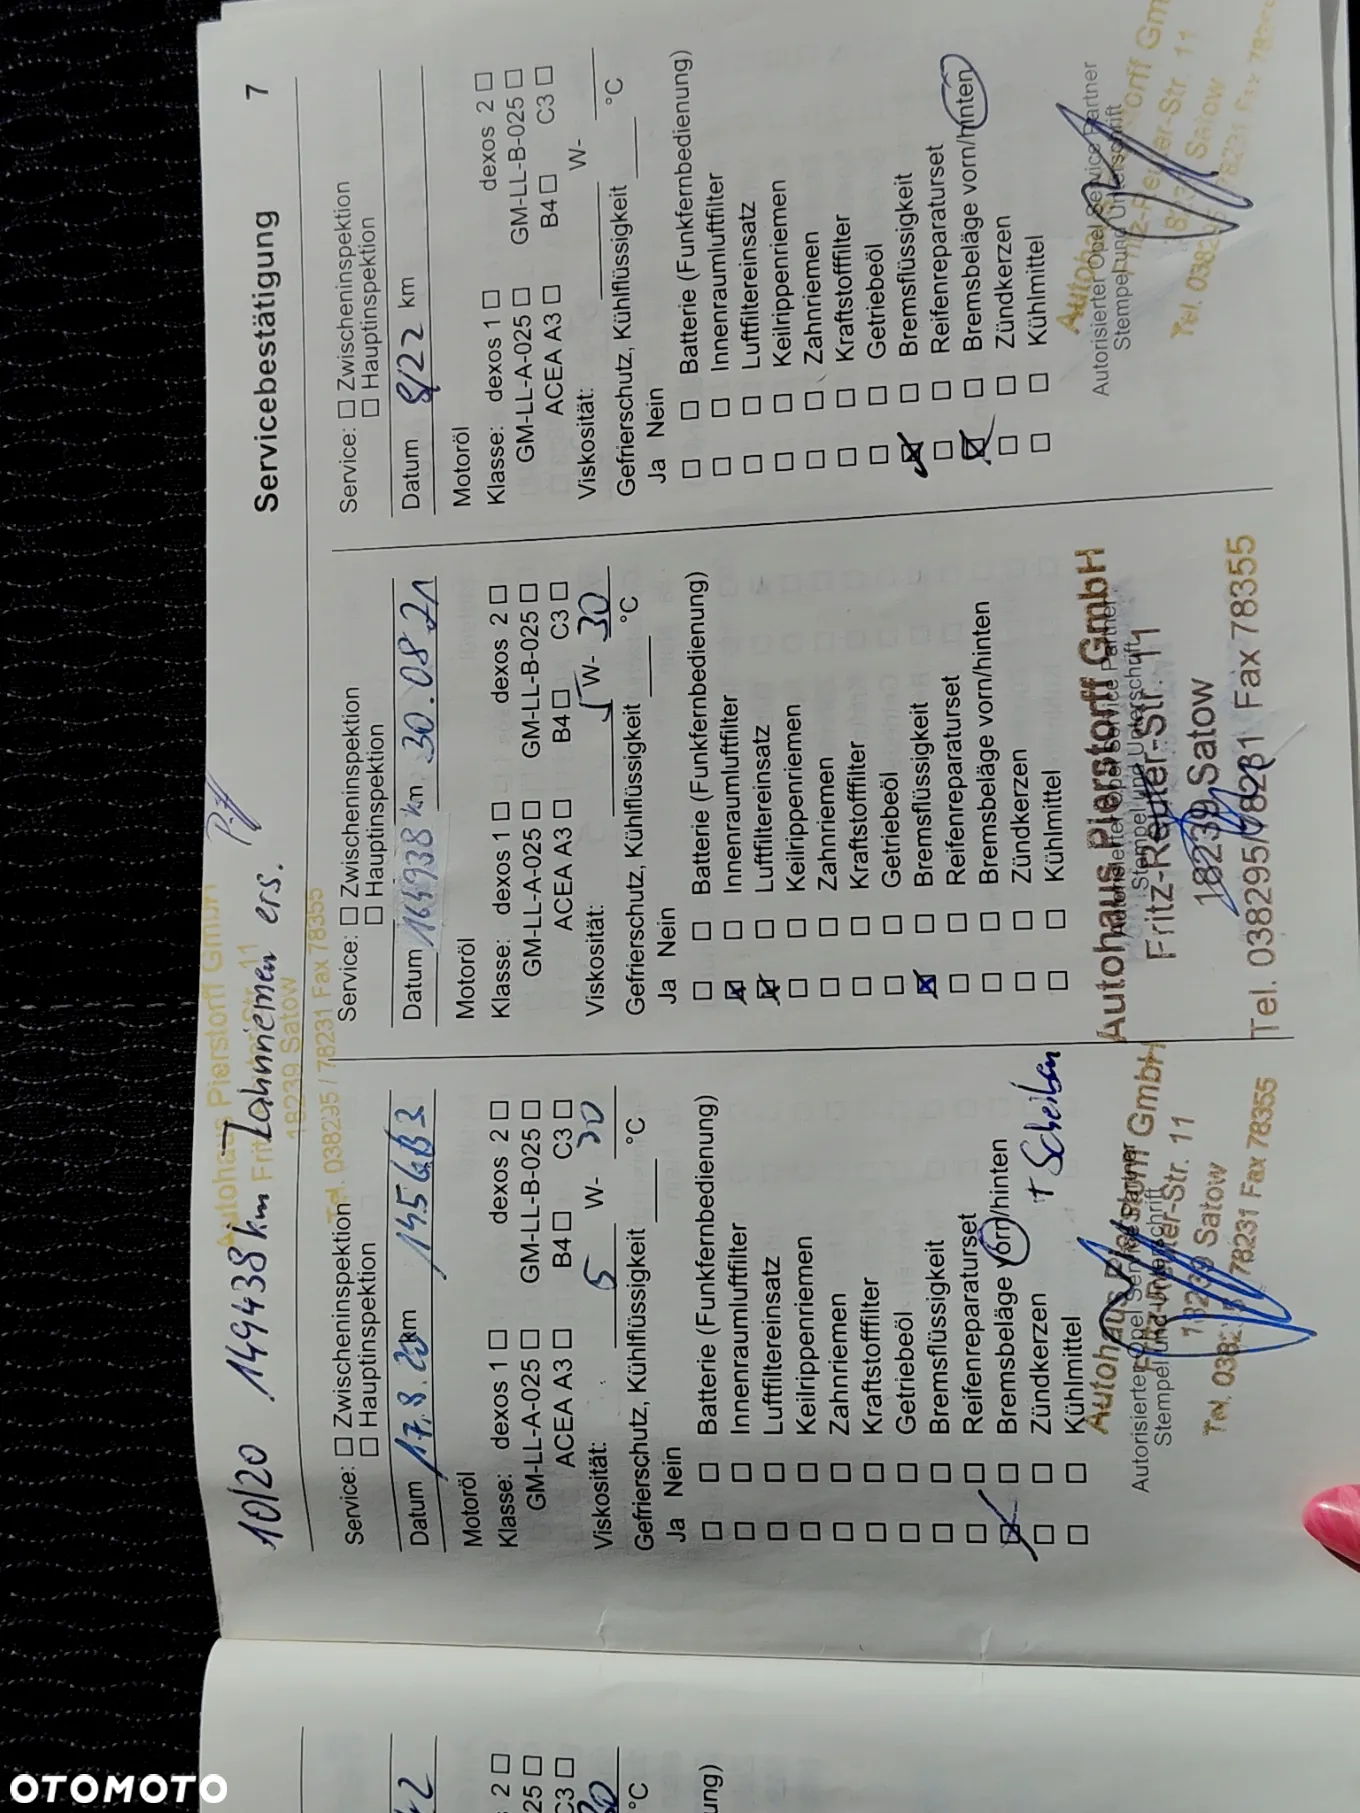 Servicebestätigung 7
10/20 149438 km Zahnriemen ers.
Autohaus Pierstorff GmbH
18239 Satow
Tel. 038295 / 78231 Fax 78355
Service: ☐ Zwischeninspektion
☐ Hauptinspektion
Datum 17.8.20 km
Motoröl
Klasse: dexos 1 ☐ dexos 2 ☐
GM-LL-A-025 ☐ GM-LL-B-025 ☐
ACEA A3 ☐ B4 ☐ C3 ☐
Viskosität: 5 W- 30
Gefrierschutz, Kühlflüssigkeit °C
Ja Nein
☐ ☐ Batterie (Funkfernbedienung)
☐ ☐ Innenraumluftfilter
☐ ☐ Luftfiltereinsatz
☐ ☐ Keilrippenriemen
☐ ☐ Zahnriemen
☐ ☐ Kraftstofffilter
☐ ☐ Getriebeöl
☐ ☐ Bremsflüssigkeit
☐ ☐ Reifenreparaturset
☒ ☐ Bremsbeläge vorn/hinten
+ Scheiben
☐ ☐ Zündkerzen
☐ ☐ Kühlmittel
Autorisierter Opel Service Partner
Stempel und Unterschrift
GmbH
18239 Satow
78231 Fax 78355
Service: ☐ Zwischeninspektion
☐ Hauptinspektion
Datum 164938 km 30.08.21
Motoröl
Klasse: dexos 1 ☐ dexos 2 ☐
GM-LL-A-025 ☐ GM-LL-B-025 ☐
ACEA A3 ☐ B4 ☐ C3 ☐
Viskosität: 5 W- 30
Gefrierschutz, Kühlflüssigkeit °C
Ja Nein
☐ ☐ Batterie (Funkfernbedienung)
☒ ☐ Innenraumluftfilter
☒ ☐ Luftfiltereinsatz
☐ ☐ Keilrippenriemen
☐ ☐ Zahnriemen
☐ ☐ Kraftstofffilter
☐ ☐ Getriebeöl
☒ ☐ Bremsflüssigkeit
☐ ☐ Reifenreparaturset
☐ ☐ Bremsbeläge vorn/hinten
☐ ☐ Zündkerzen
☐ ☐ Kühlmittel
Autohaus Pierstorff GmbH
Fritz-Reuter-Str. 11
18239 Satow
Tel. 038295/78231 Fax 78355
Service: ☐ Zwischeninspektion
☐ Hauptinspektion
Datum 8/22 km
Motoröl
Klasse: dexos 1 ☐ dexos 2 ☐
GM-LL-A-025 ☐ GM-LL-B-025 ☐
ACEA A3 ☐ B4 ☐ C3 ☐
Viskosität: W-
Gefrierschutz, Kühlflüssigkeit °C
Ja Nein
☐ ☐ Batterie (Funkfernbedienung)
☐ ☐ Innenraumluftfilter
☐ ☐ Luftfiltereinsatz
☐ ☐ Keilrippenriemen
☐ ☐ Zahnriemen
☐ ☐ Kraftstofffilter
☐ ☐ Getriebeöl
☒ ☐ Bremsflüssigkeit
☐ ☐ Reifenreparaturset
☒ ☐ Bremsbeläge vorn/hinten
☐ ☐ Zündkerzen
☐ ☐ Kühlmittel
Autorisierter Opel Service Partner
Stempel und Unterschrift
Satow
OTOMOTO